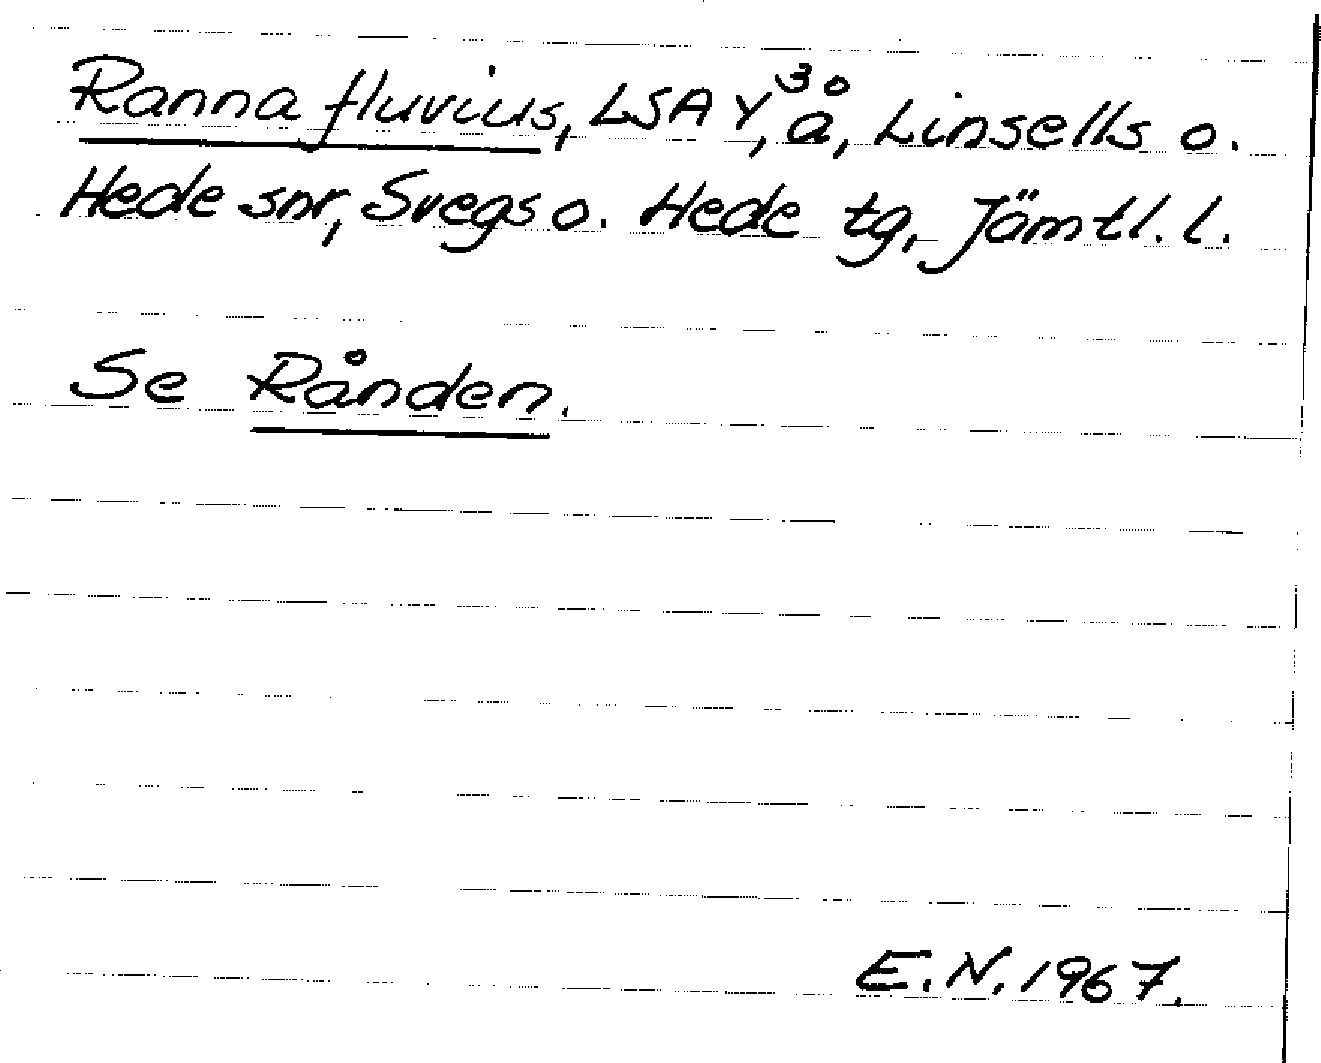 Ranna fluvius, LSA Y³, å, Linsells o.
Hede snr, Svegs o. Hede tg, Jämtl. l.
Se Rånden.
E.N. 1967.